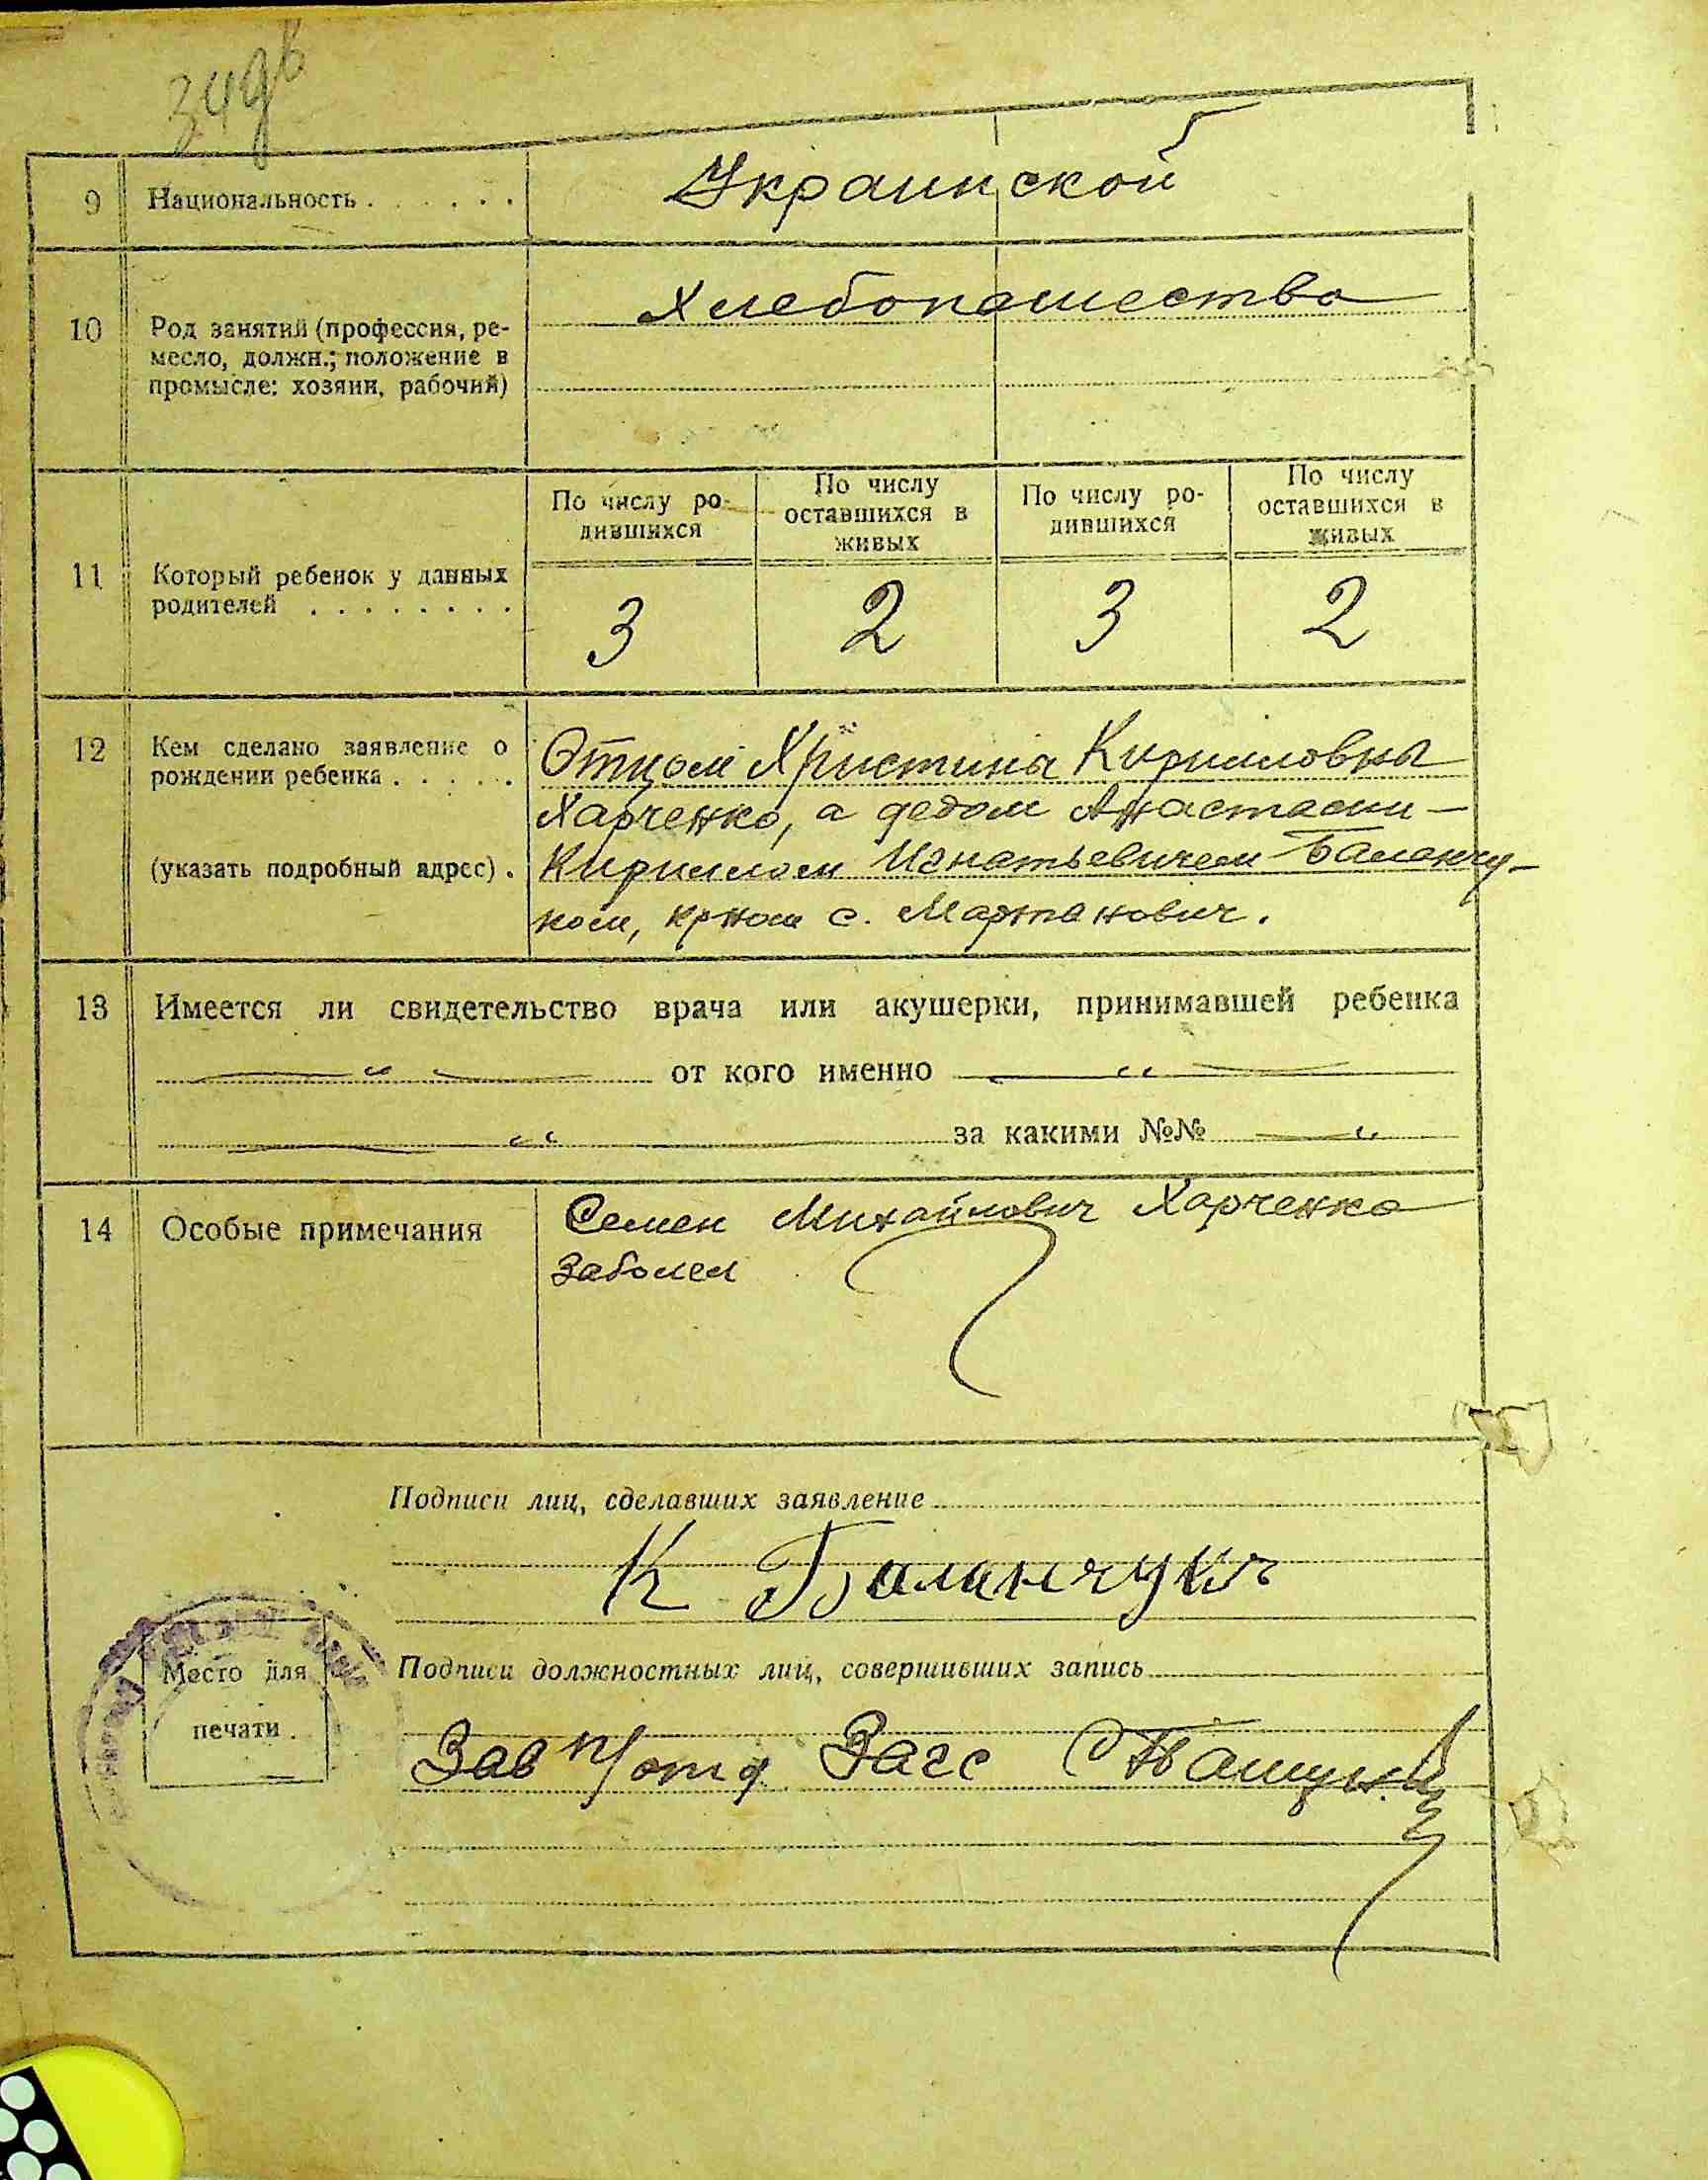 9 Национальность . . . . . . Украинской
10 Род занятий (профессия, ре-
месло, должн.; положение в
промысле: хозяин, рабочий)
Хлебопашество
11 Который ребенок у данных
родителей . . . . . . . .
По числу ро-
дившихся
По числу
оставшихся в
живых
По числу ро-
дившихся
По числу
оставшихся в
живых
3 2 3 2
12 Кем сделано заявление о
рождении ребенка . . . . .
(указать подробный адрес) .
Отцом Христина Кирилловна
Харченко, а дедом Анастасии
Кириллом Игнатьевичем Баланчу-
ком, с. Мартанович.
13 Имеется ли свидетельство врача или акушерки, принимавшей ребенка
— " — от кого именно — " —
— " — за какими №№ — "
14 Особые примечания
Семен Михайлович Харченко
заболел
Подписи лиц, сделавших заявление
К Баланчукъ
Подписи должностных лиц, совершивших запись
Место для
печати .
Зав Загс